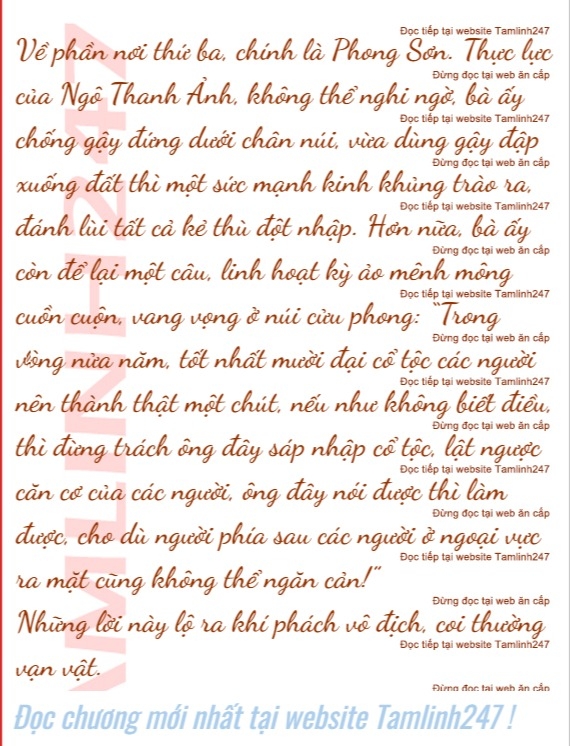 Đọc tiếp tại website Tamlinh247
Về phần nơi thứ ba, chính là Phong Sơn. Thực lực
Đừng đọc tại web ăn cắp
của Ngô Thanh Ảnh, không thể nghi ngờ, bà ấy
Đọc tiếp tại website Tamlinh247
chống gậy đứng dưới chân núi, vừa dùng gậy đập
Đừng đọc tại web ăn cắp
xuống đất thì một sức mạnh kinh khủng trào ra,
Đọc tiếp tại website Tamlinh247
đánh lùi tất cả kẻ thù đột nhập. Hơn nữa, bà ấy
Đừng đọc tại web ăn cắp
còn để lại một câu, linh hoạt kỳ ảo mênh mông
Đọc tiếp tại website Tamlinh247
cuồn cuộn, vang vọng ở núi cửu phong: “Trong
Đừng đọc tại web ăn cắp
vòng nửa năm, tốt nhất mười đại cổ tộc các người
Đọc tiếp tại website Tamlinh247
nên thành thật một chút, nếu như không biết điều,
Đừng đọc tại web ăn cắp
thì đừng trách ông đây sáp nhập cổ tộc, lật ngược
Đọc tiếp tại website Tamlinh247
căn cơ của các người, ông đây nói được thì làm
Đừng đọc tại web ăn cắp
được, cho dù người phía sau các người ở ngoại vực
Đọc tiếp tại website Tamlinh247
ra mặt cũng không thể ngăn cản!”
Đừng đọc tại web ăn cắp
Những lời này lộ ra khí phách vô địch, coi thường
Đọc tiếp tại website Tamlinh247
vạn vật.
Đừng đọc tại web ăn cắp
AMLINH247
Đọc chương mới nhất tại website Tamlinh247 !